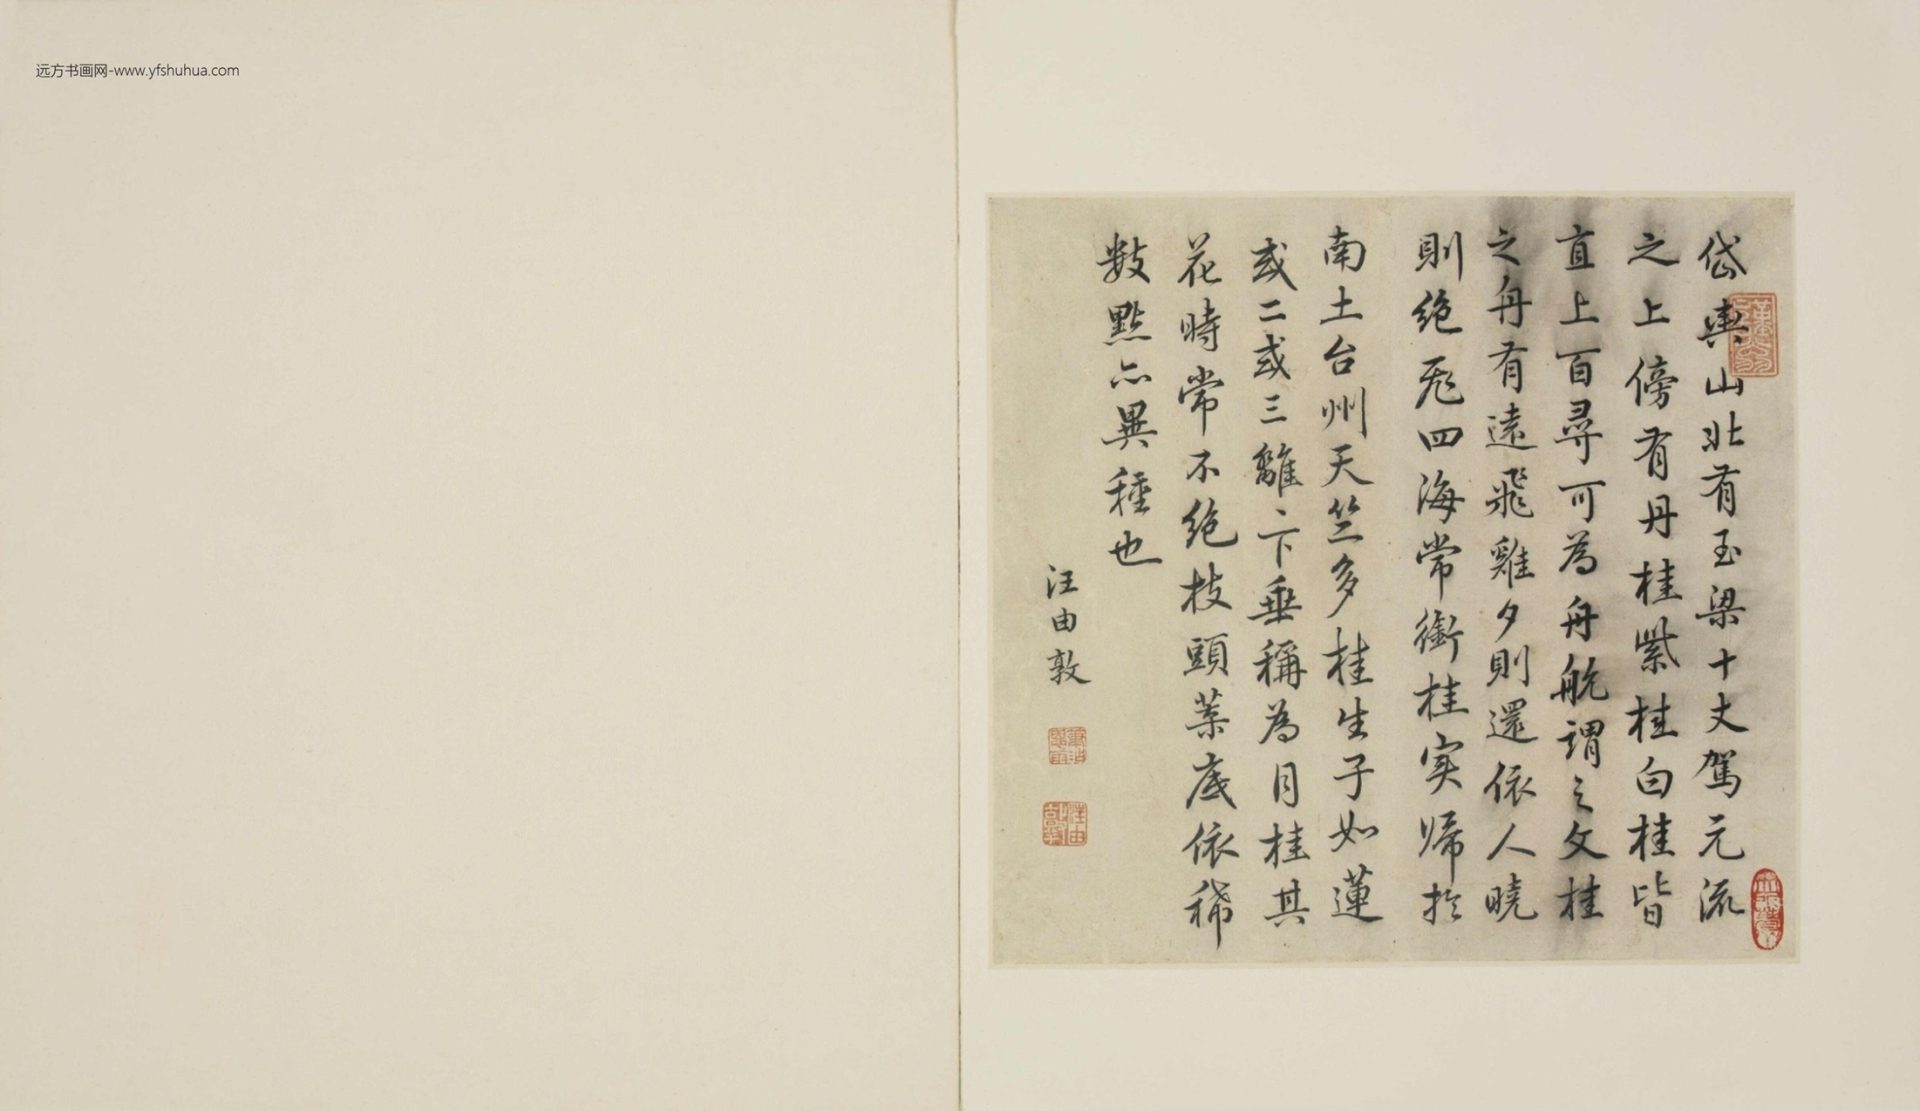 远方书画网-www.yfshuhua.com
岱輿山北有玉梁十丈駕元流
之上傍有丹桂紫桂白桂皆
直上百尋可為舟航謂之文桂
之舟有遠飛雞夕則還依人曉
則絶飛四海常銜桂實歸於
南土台州天竺多桂生子如蓮
或二或三離離下垂稱為月桂其
花時常不絶枝頭葉底依稀
數點亦異種也
汪由敦